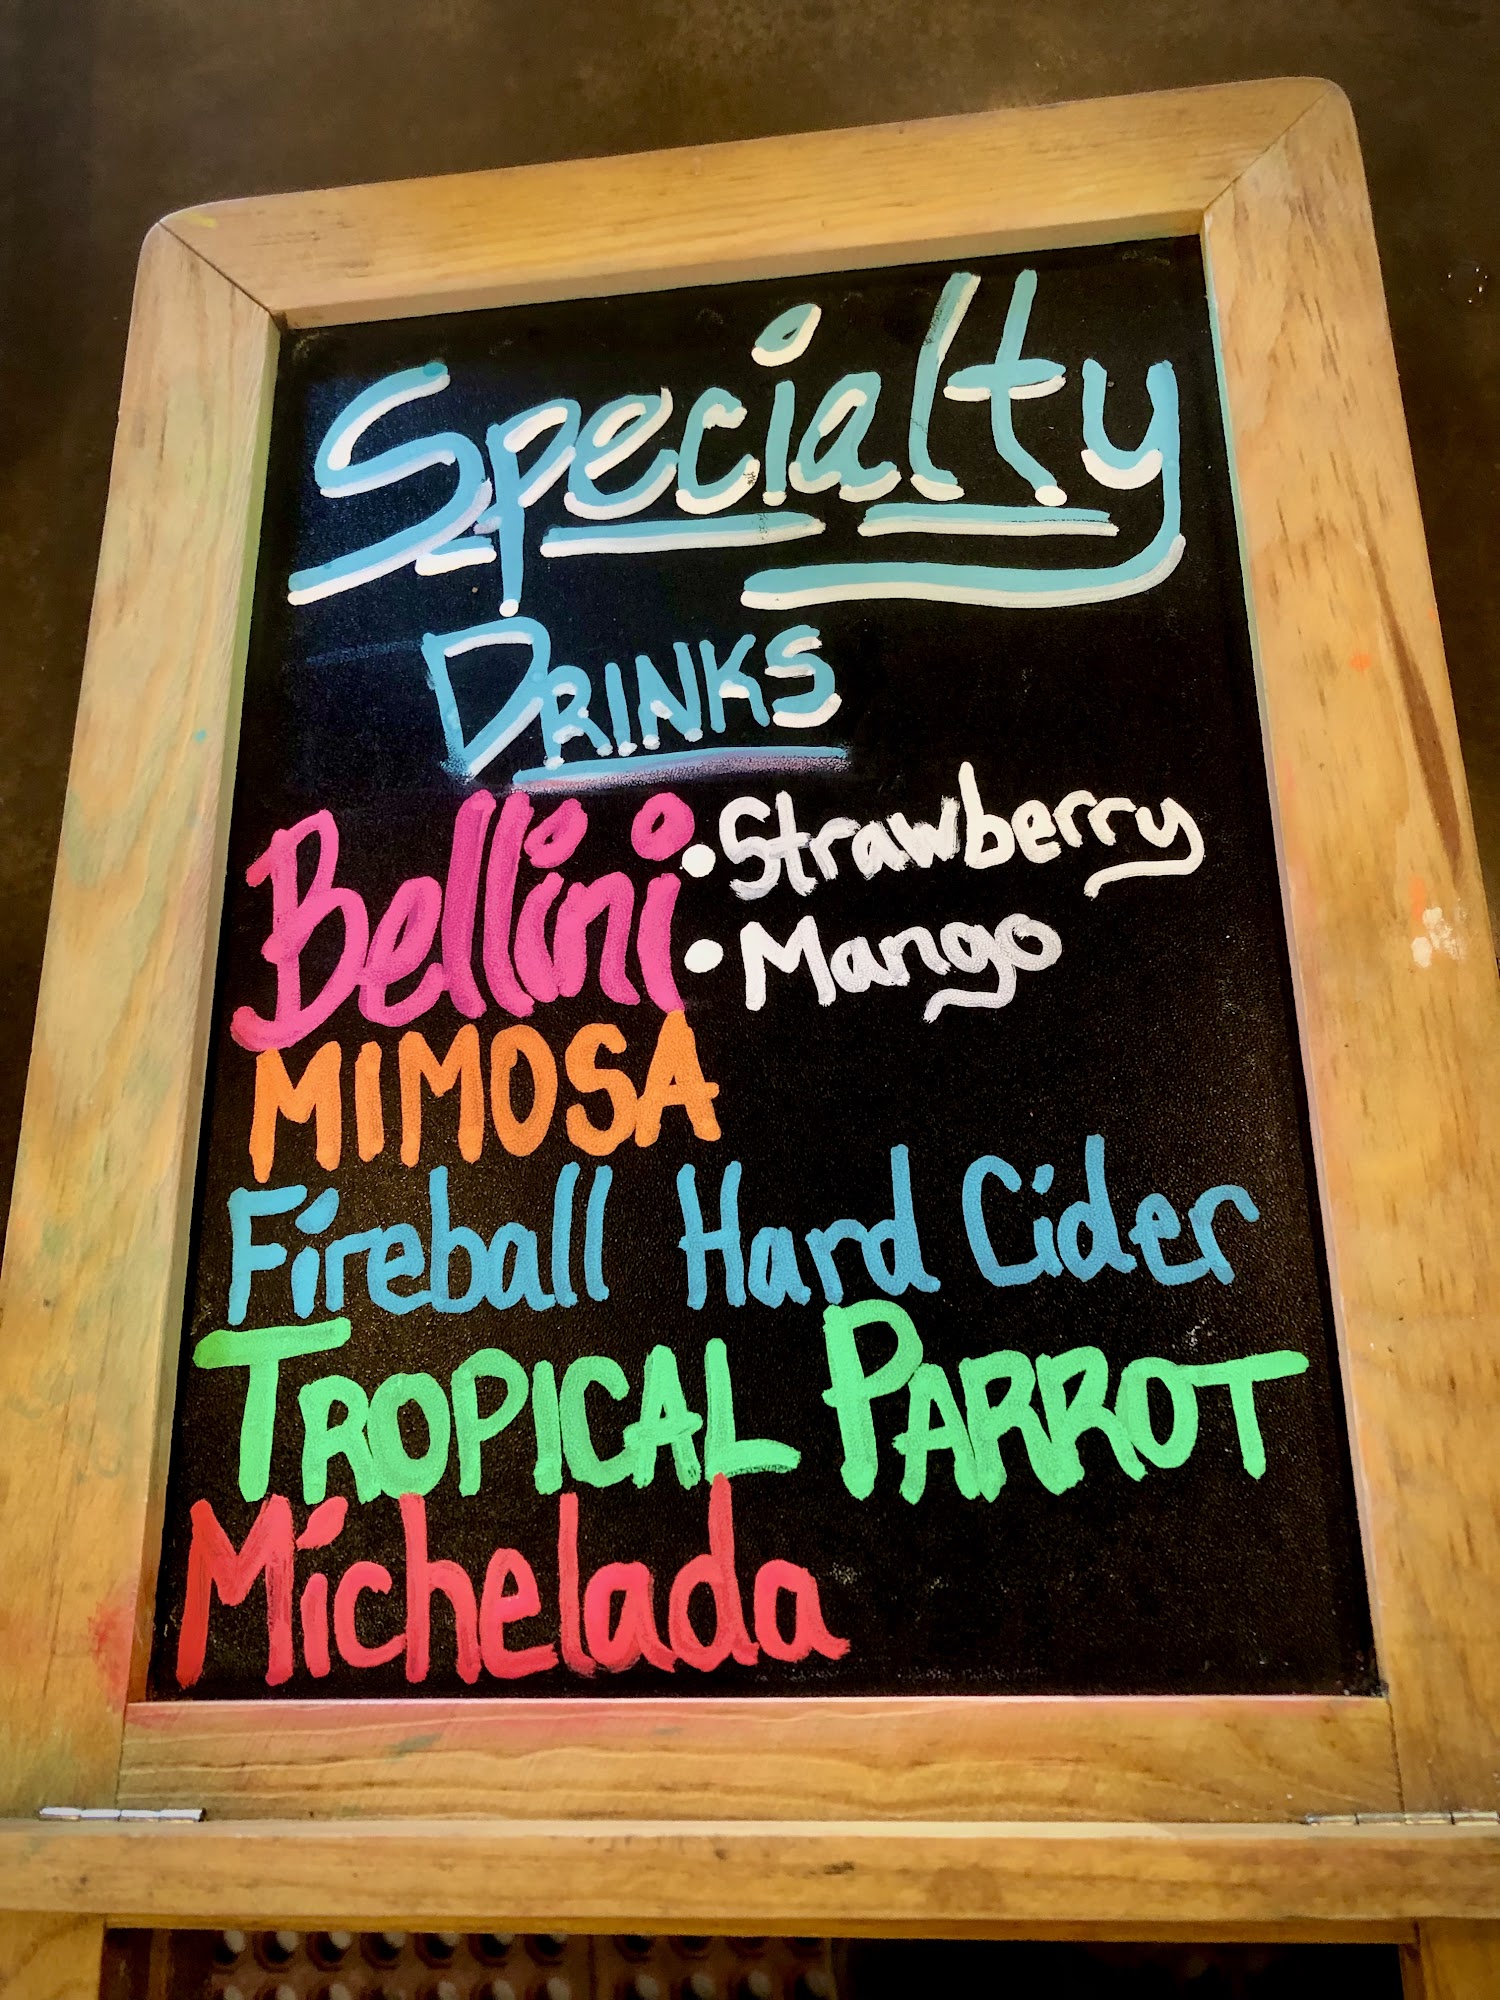 Specialty
DRINKS
Bellini • Strawberry
• Mango
MIMOSA
Fireball Hard Cider
TROPICAL PARROT
Michelada